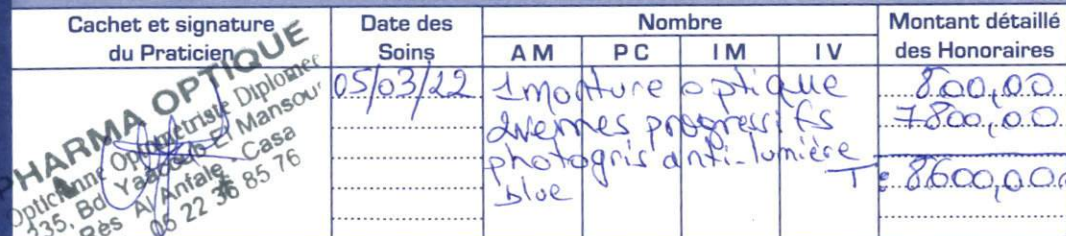 Cachet et signature du Praticien
Date des Soins
Nombre
Montant détaillé des Honoraires
AM PC IM IV
PHARMA OPTIQUE
Opticienne Optométriste Diplomée
235, Bd Yaacoub El Mansour
Rès Al Anfale Casa
05 22 36 85 76
05/03/22 1 monture optique 800,00
2 verres progressifs 7800,00
photogris anti-lumière
blue T: 8600,00